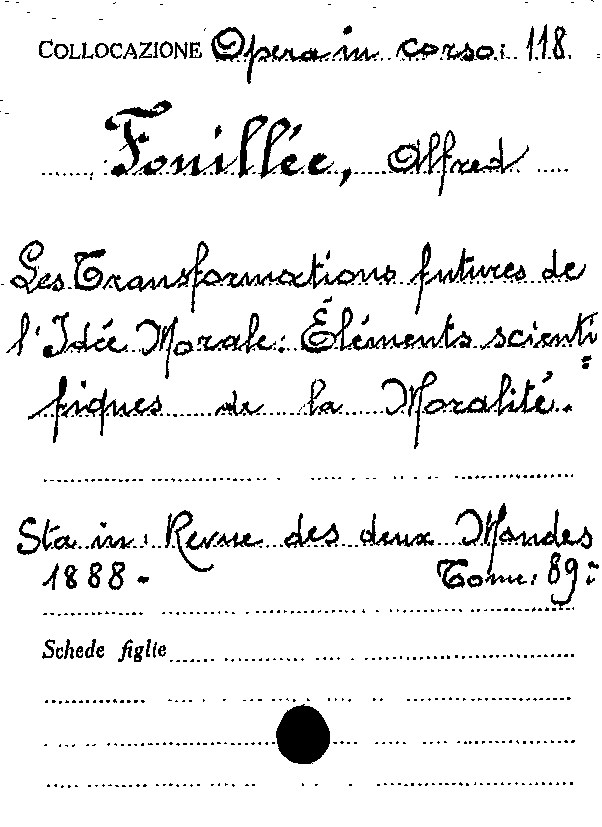 COLLOCAZIONE Opera in corso: 118.
Fouillée, Alfred
Les Transformations futures de
l'Idée Morale: Éléments scienti=
fiques de la Moralité.
Sta in: Revue des deux Mondes
1888- Tome: 89:
Schede figlie